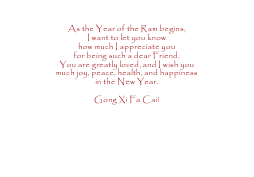 As the Year of the Ram begins,
I want to let you know
how much I appreciate you
for being such a dear Friend.
You are greatly loved, and I wish you
much joy, peace, health, and happiness
in the New Year.
Gong Xi Fa Cai!